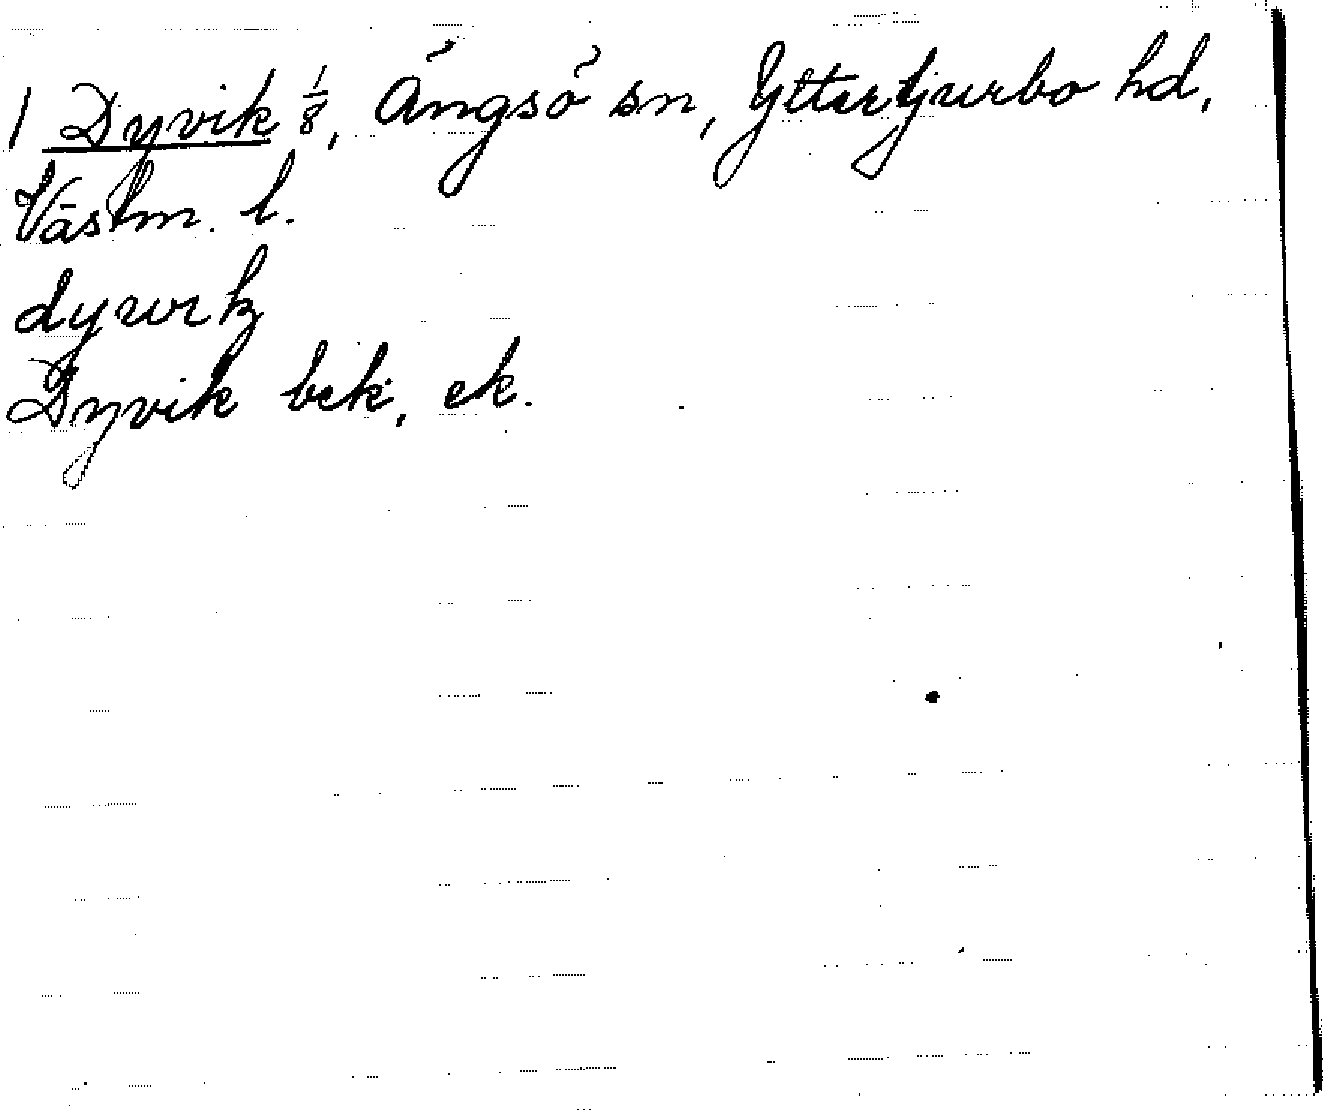 1 Dyvik 1/8, Ängsö sn, Yttertjurbo hd,
Västm. l.
dywik
Dyvik bek, ek.